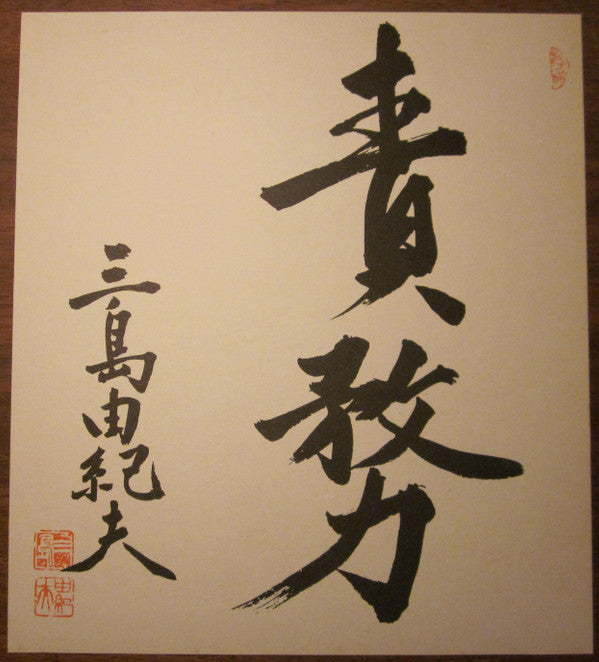 責務
三島由紀夫